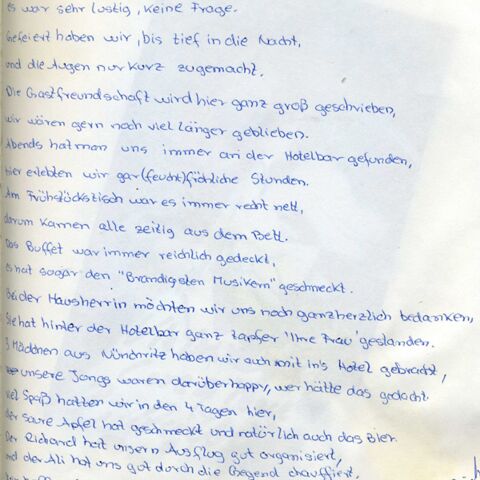 es war sehr lustig, keine Frage.
Gefeiert haben wir, bis tief in die Nacht,
und die Augen nur kurz zugemacht.
Die Gastfreundschaft wird hier ganz groß geschrieben,
wir wären gern noch viel länger geblieben.
Abends hat man uns immer an der Hotelbar gefunden,
hier erlebten wir gar (feucht)fröhliche Stunden.
Am Frühstückstisch war es immer recht nett,
darum kamen alle zeitig aus dem Bett.
Das Buffet war immer reichlich gedeckt,
es hat sogar den "Brandigsten Musikern" geschmeckt.
Bei der Hausherrin möchten wir uns noch ganz herzlich bedanken,
Sie hat hinter der Hotelbar ganz tapfer 'Ihre Frau' gestanden.
3 Mädchen aus Nünchritz haben wir auch mit in's Hotel gebracht,
unsere Jongs waren darüber happy, wer hätte das gedacht.
viel Spaß hatten wir in den 4 Tagen hier,
der saure Apfel hat geschmeckt und natürlich auch das Bier.
Der Richard hat unsern Ausflug gut organisiert,
und der Ali hat uns gut durch die Gegend chauffiert.